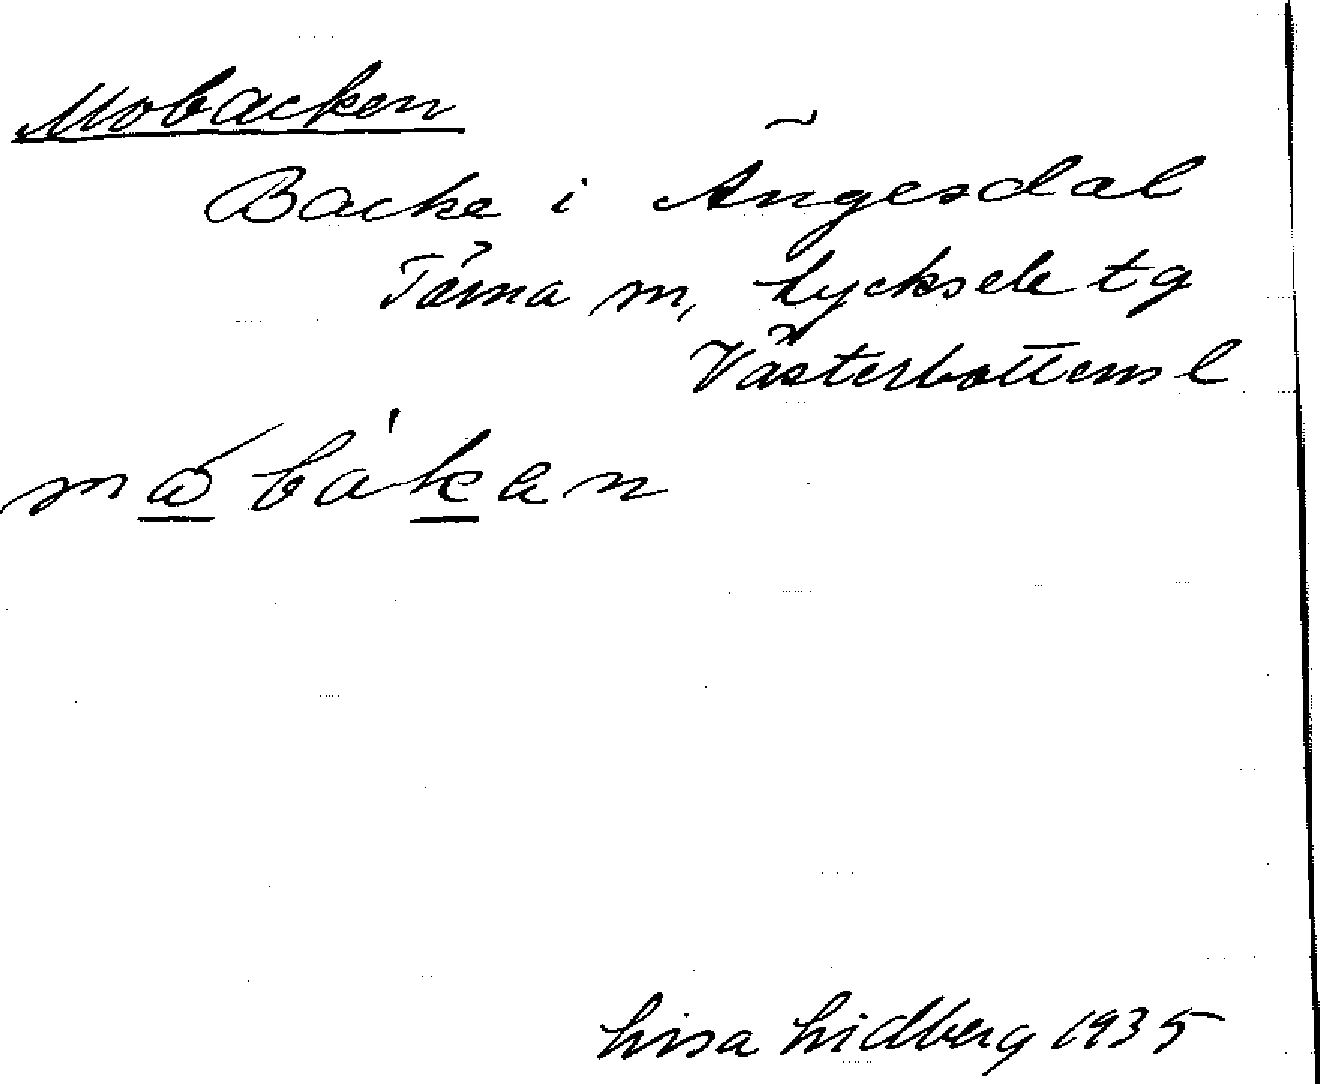 Mobacken
Backe i Ängesdal
Tärna sn, Lycksele tg
Västerbottens l
måbakan
Lisa Lidberg 1935